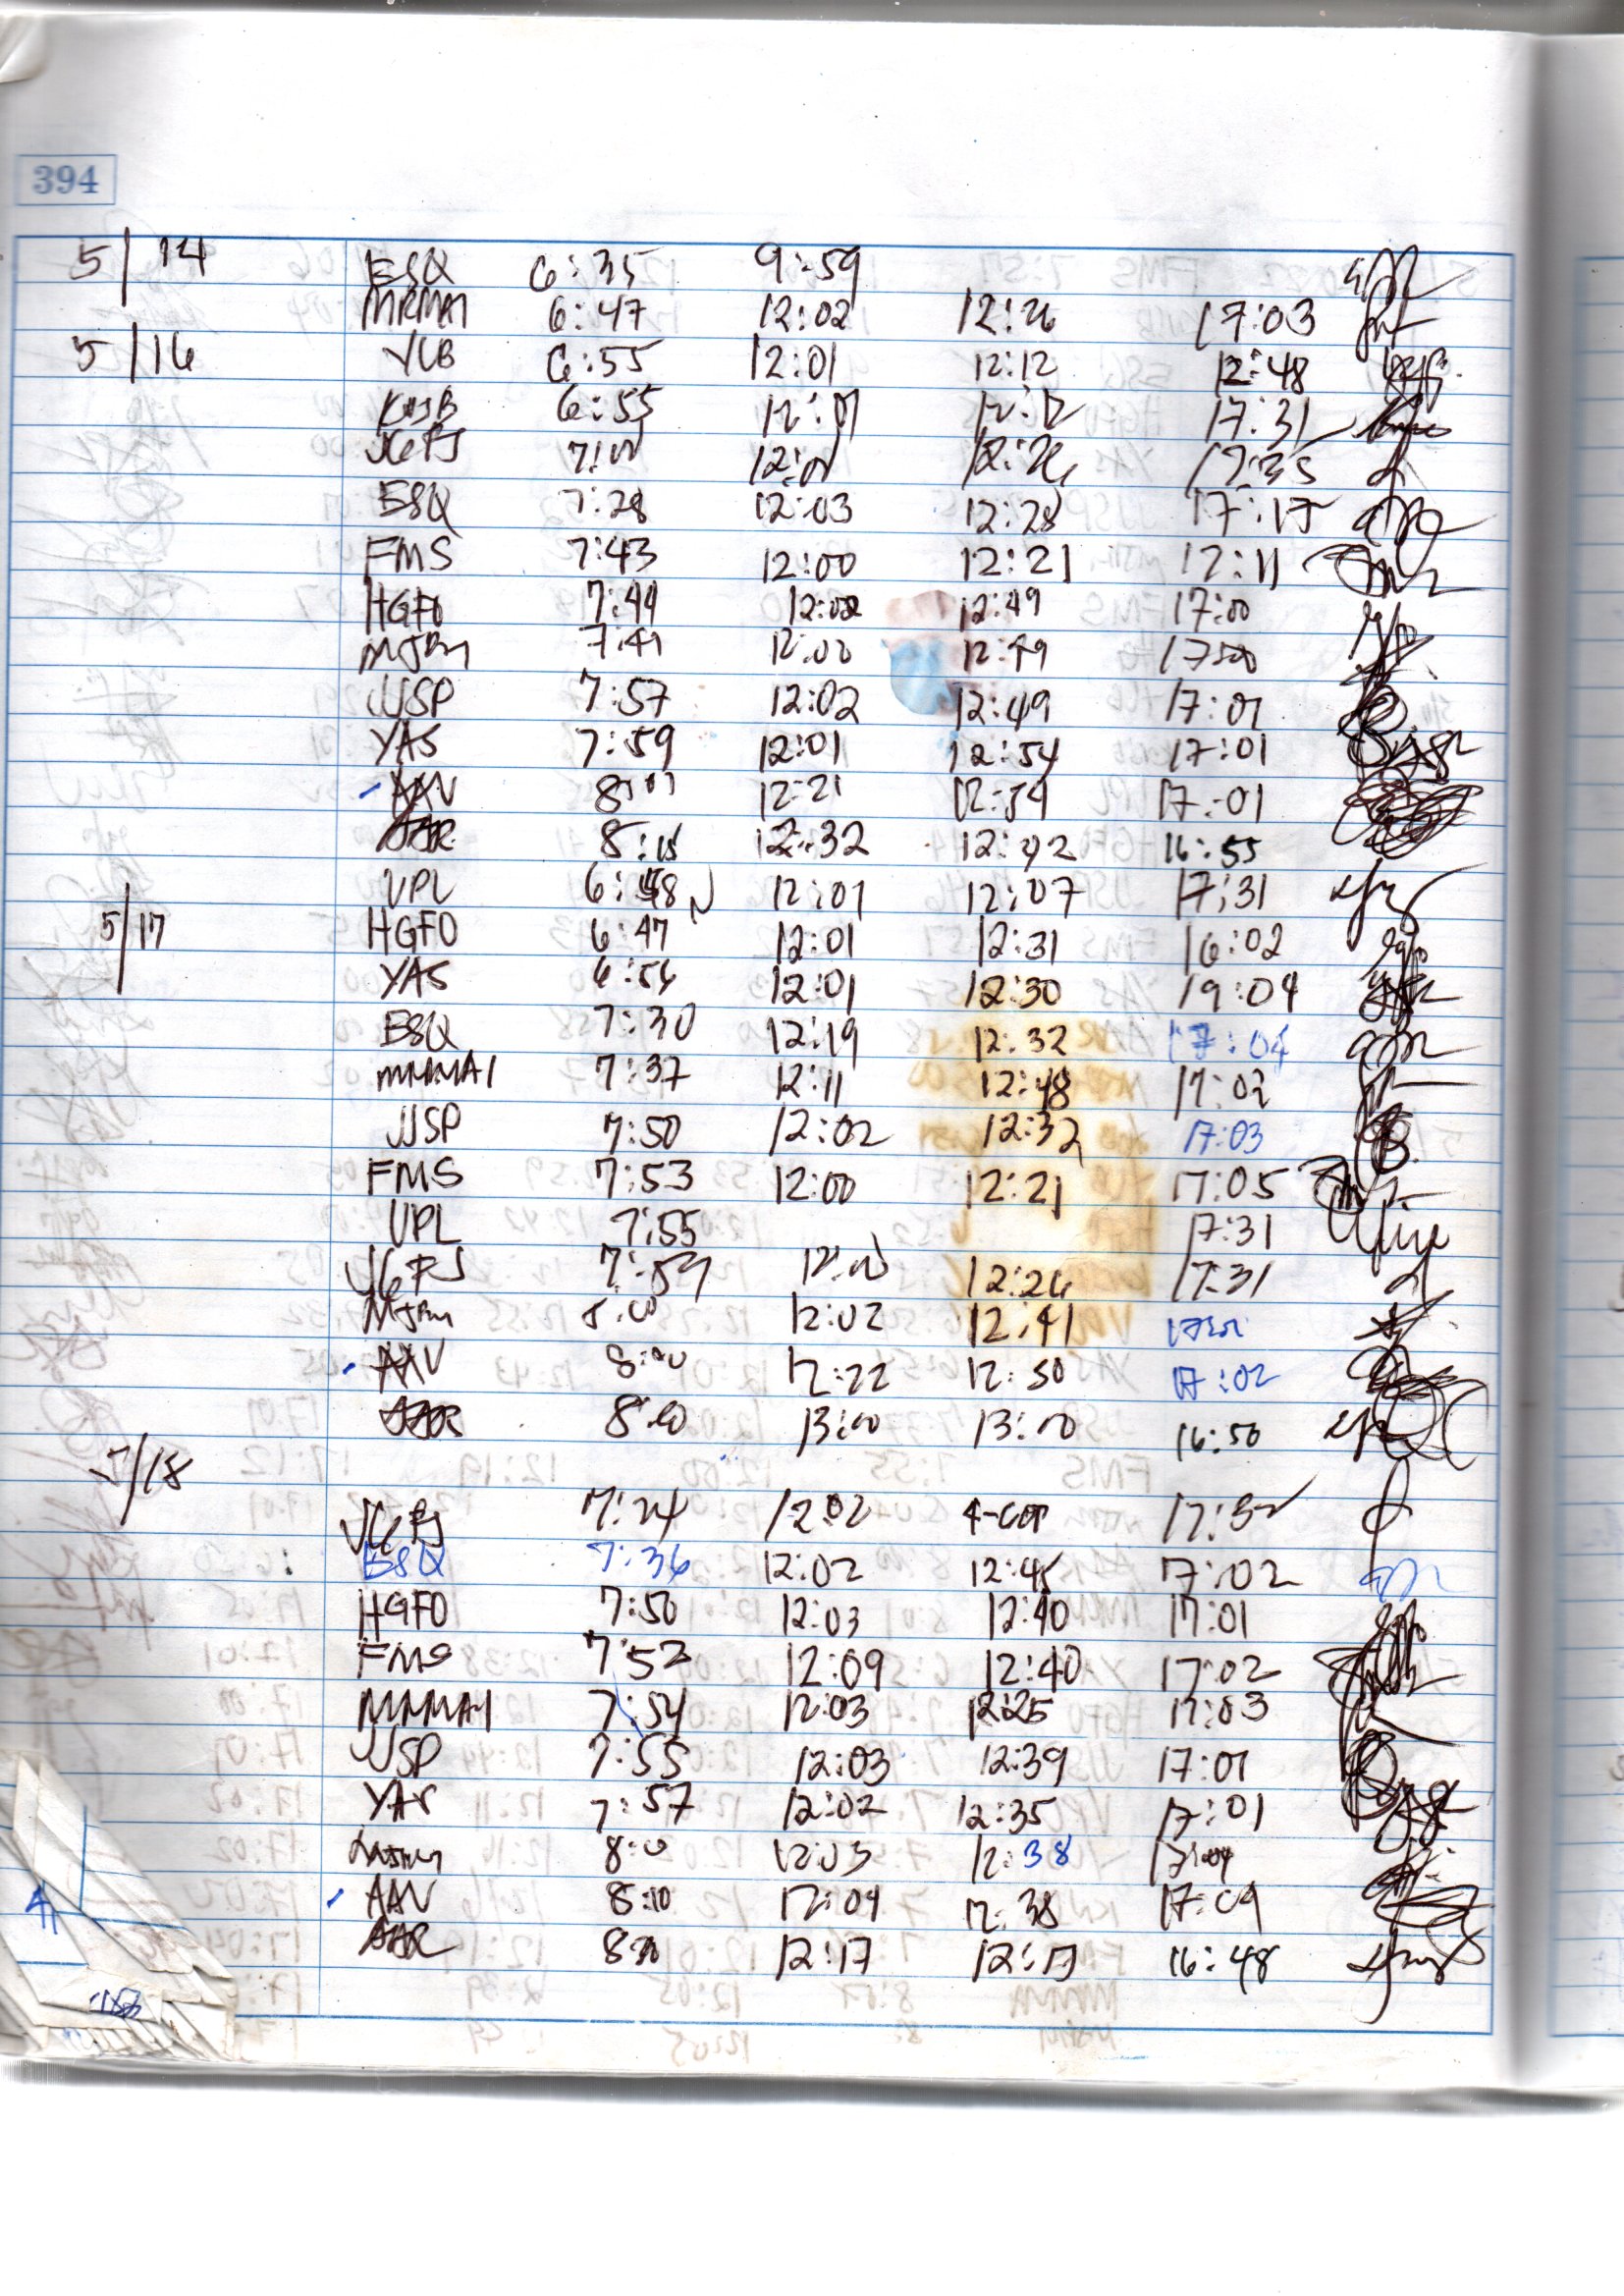 394
5/14 ESQ 6:35 9:59
MRMA1 6:47 12:02 12:26 17:03
5/16 YCB 6:55 12:01 12:12 12:48
6:55 12:01 12:12 17:31
12:01 12:26 17:35
ESQ 7:28 12:03 12:28 17:15
FMS 7:43 12:00 12:21 17:11
HGFO 7:44 12:02 12:49 17:00
MJBM 7:41 12:00 12:49 17:00
JJSP 7:57 12:02 12:49 17:01
YAS 7:59 12:01 12:54 17:01
AAV 8:01 12:21 12:59 17:01
8:15 12:32 12:42 16:55
VPL 6:48 12:01 12:07 17:31
5/17 HGFO 6:47 12:01 12:31 16:02
YAS 6:56 12:01 12:30 19:04
ESQ 7:30 12:19 12:32 17:04
MMMA1 7:37 12:11 12:48 17:02
JJSP 7:50 12:02 12:32 17:03
FMS 7:53 12:00 12:21 17:05
VPL 7:55 17:31
7:59 12:26 17:31
8:00 12:02 12:41
AAV 8:00 12:22 12:50 17:02
8:00 13:00 13:00 16:50
5/18
7:24 12:02 17:32
ESQ 7:36 12:02 12:45 17:02
HGFO 7:50 12:03 12:40 17:01
FMS 7:52 12:09 12:40 17:02
MMMA1 7:54 12:03 12:25 17:03
JJSP 7:55 12:03 12:39 17:01
YAS 7:57 12:02 12:35 17:01
8:0 12:03 12:38 17:04
AAV 8:10 12:09 12:38 17:09
12:17 12:17 16:48